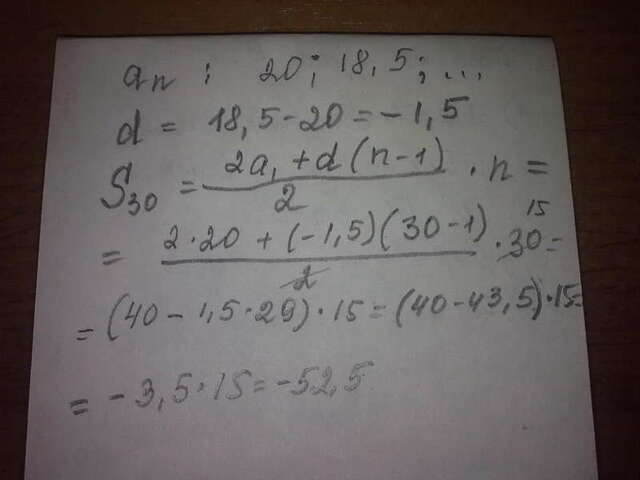 aₙ : 20; 18,5; ...
d = 18,5-20 = -1,5
S₃₀ = (2a₁ + d(n-1))/2 · n =
= (2·20 + (-1,5)(30-1))/2 · 30 15 =
= (40 - 1,5·29)·15 = (40-43,5)·15=
= -3,5·15 = -52,5